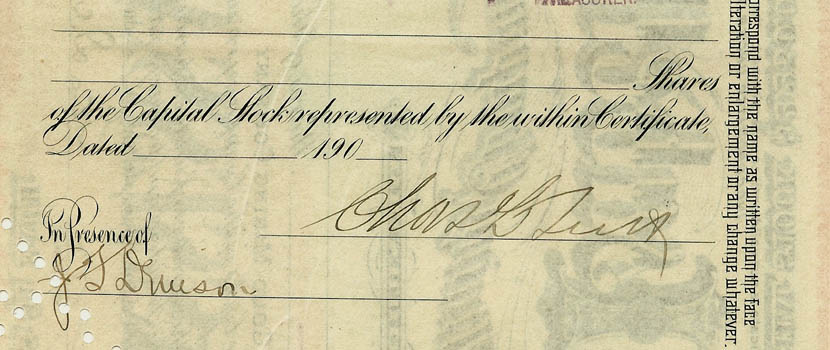 TREASURER.
Shares
of the Capital Stock represented by the within Certificate,
Dated 190
In Presence of
Chas G
J F Denison
orrespond with the name as written upon the face
lteration or enlargement or any change whatever.